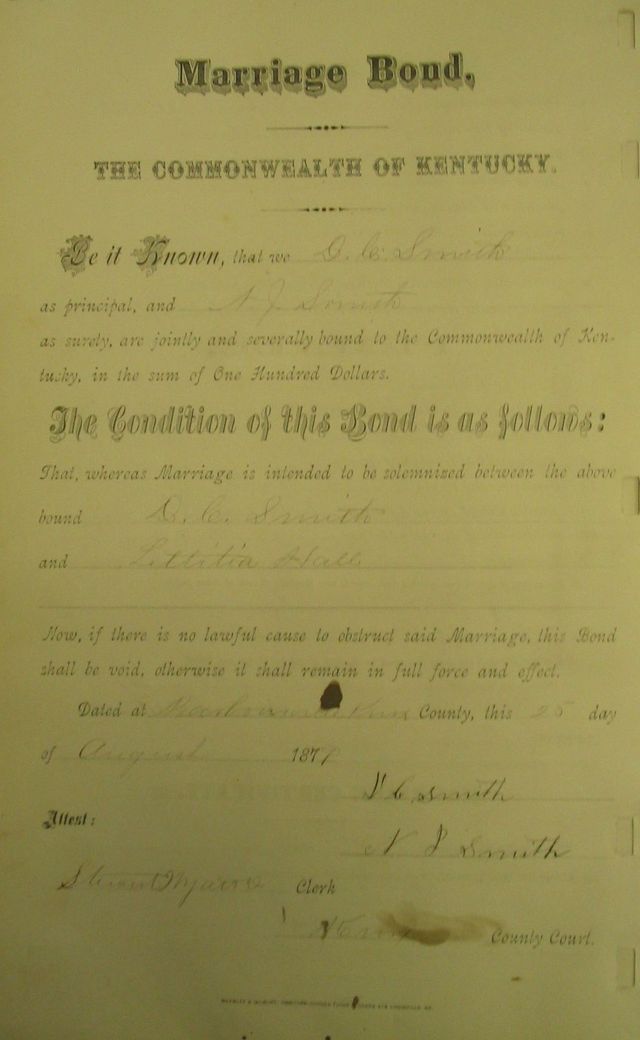 Marriage Bond,
THE COMMONWEALTH OF KENTUCKY.
Be it Known, that we D. C. Smith
as principal, and N J Smith
as surety, are jointly and severally bound to the Commonwealth of Ken-
tucky, in the sum of One Hundred Dollars.
The Condition of this Bond is as follows:
That, whereas Marriage is intended to be solemnized between the above
bound D. C. Smith
and Lettitia Hall
Now, if there is no lawful cause to obstruct said Marriage, this Bond
shall be void, otherwise it shall remain in full force and effect.
Dated at County, this 25 day
of August 1879
D C. Smith
Attest:
N J Smith
Clerk
County Court.